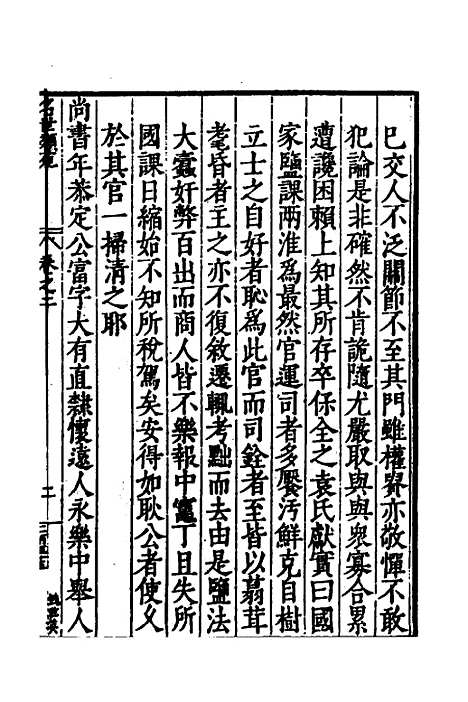 已交人不泛關節不至其門雖權貴亦敬憚不敢
犯論是非確然不肯詭隨尤嚴取與與衆寡合累
遭讒困賴上知其所存卒保全之袁氏獻實曰國
家鹽課兩淮為最然官運司者多饜汚鮮克自樹
立士之自好者恥為此官而司銓者至皆以翦茸
耄昏者王之亦不復敘遷輒考黜而去由是鹽法
大蠹奸弊百出而商人皆不樂報中竈丁且失所
國課日縮如不知所稅駕矣安得如耿公者使乂
於其官一掃清之耶
尚書年恭定公富字大有直隸懷遠人永樂中舉人
名世類苑
卷之三
二